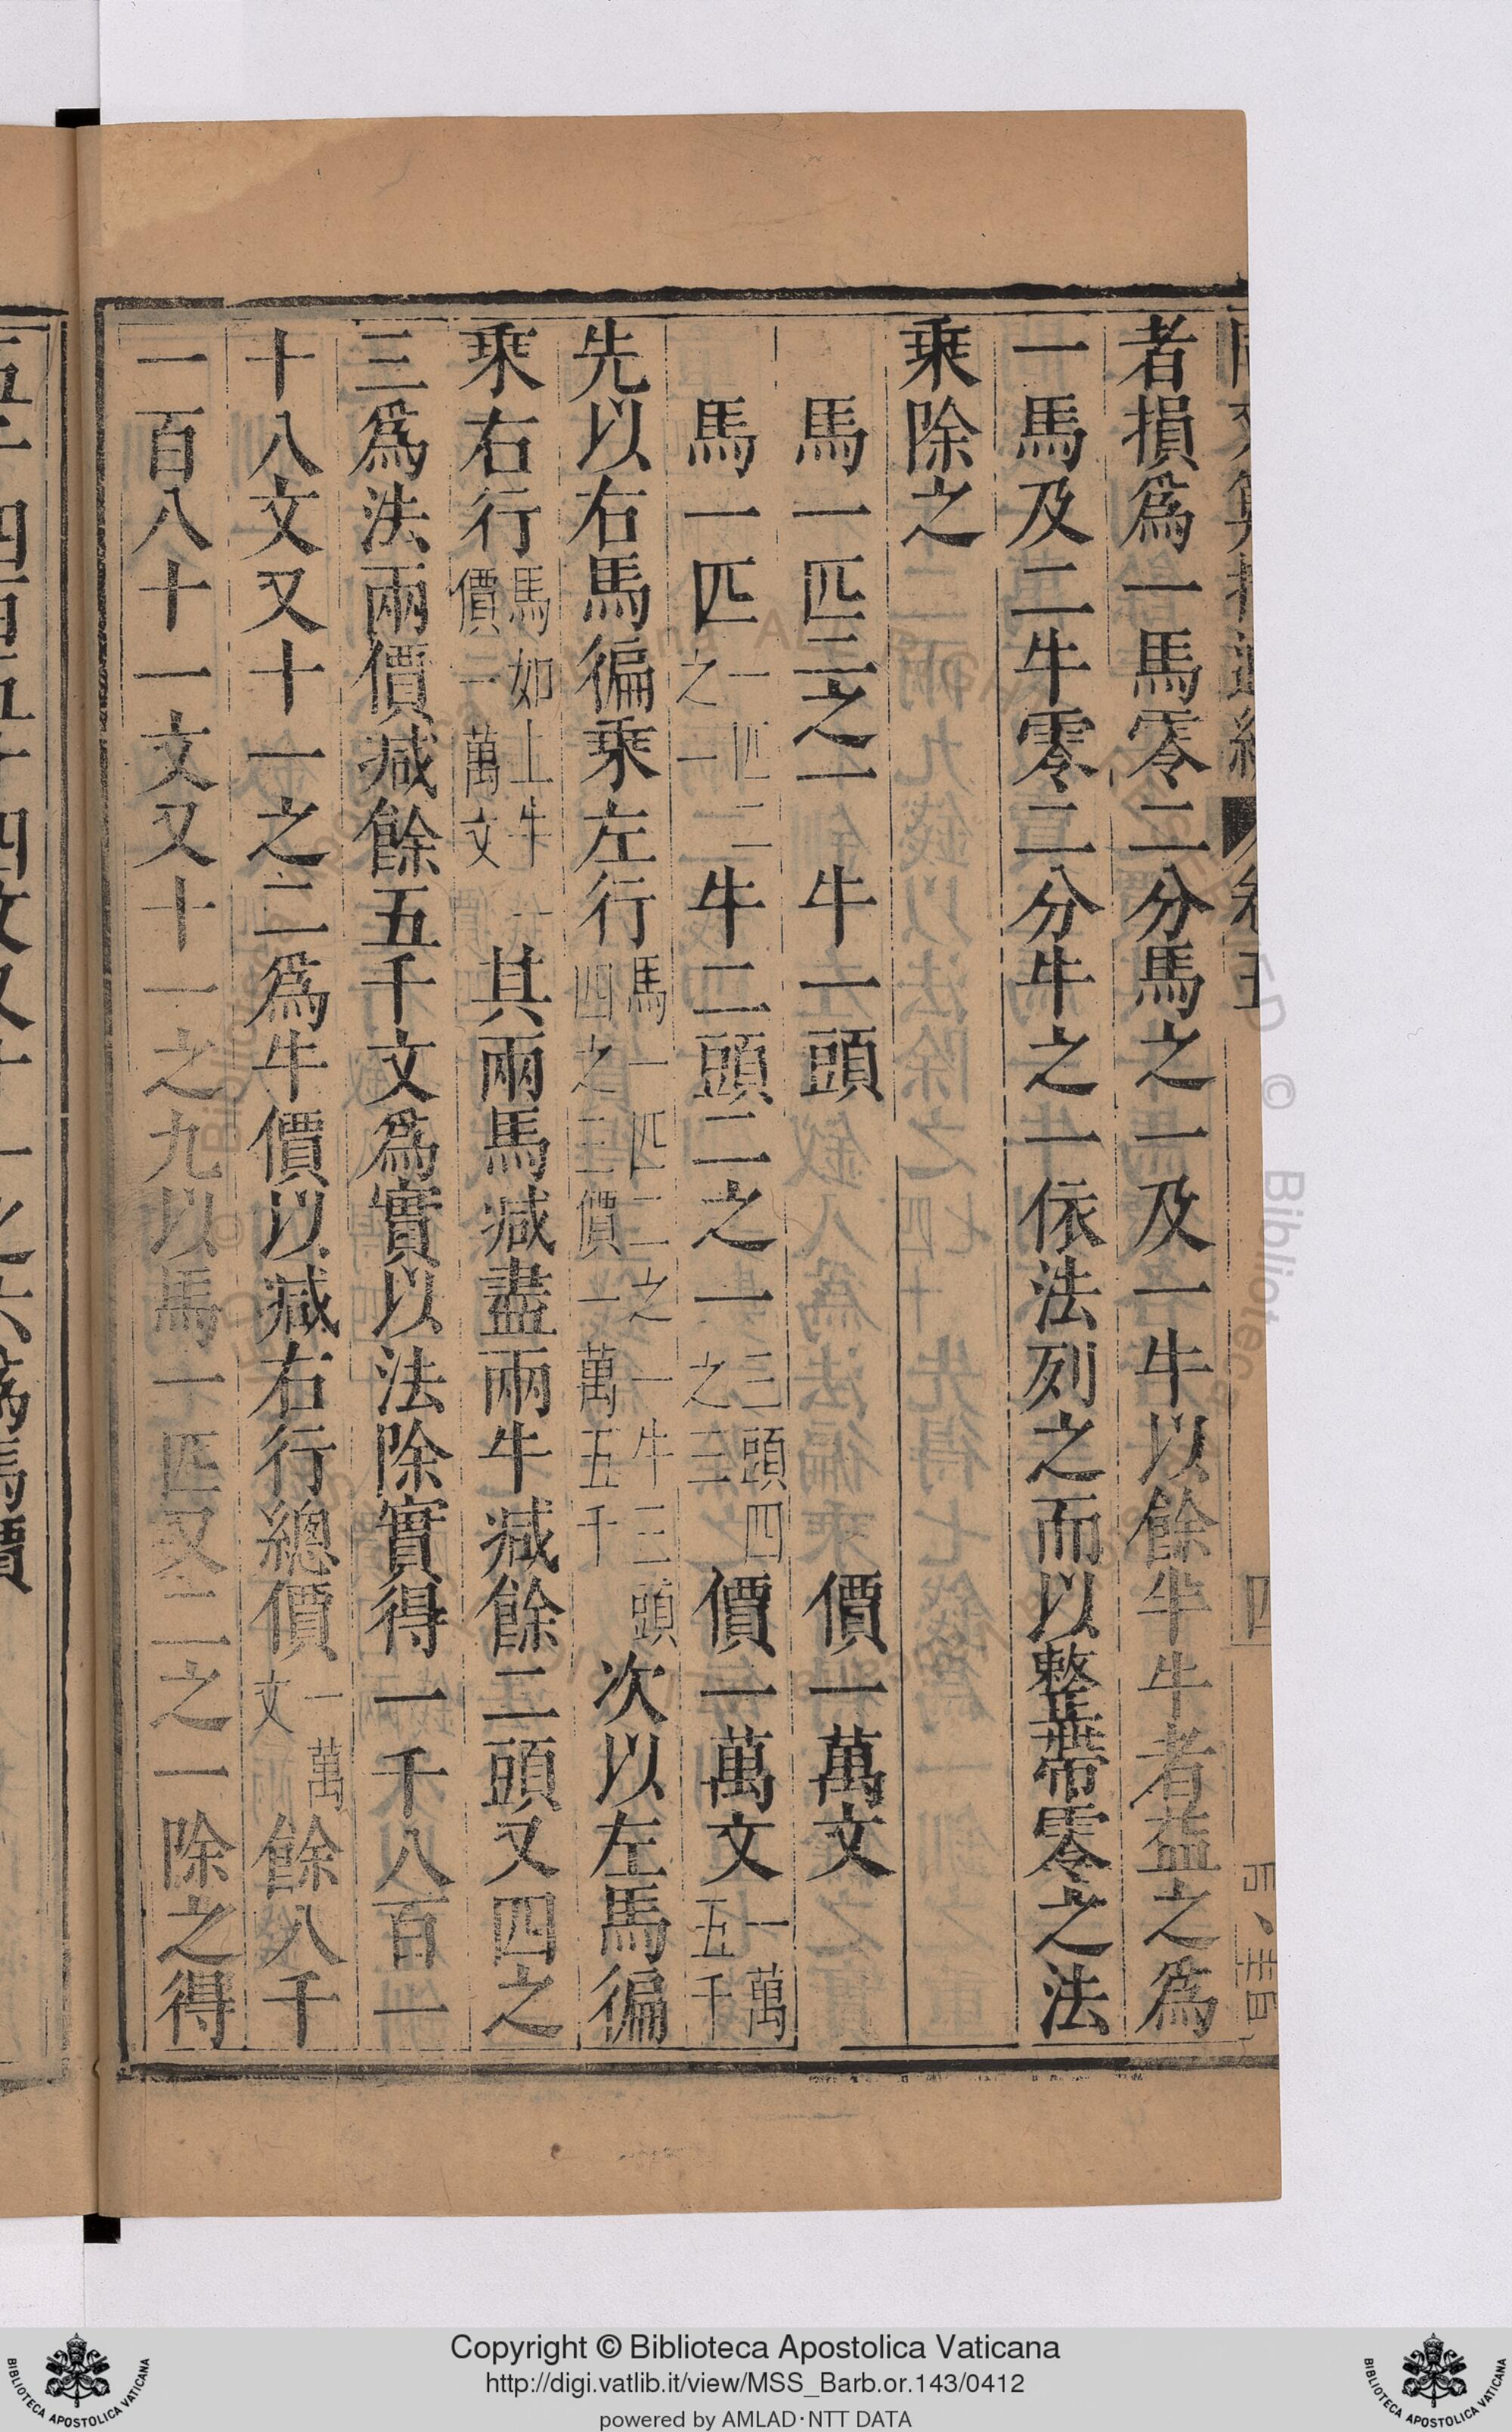 卷五
四
者損爲一馬零二分馬之一及一牛以餘半牛者益之爲
一馬及二牛零二分牛之一依法列之而以整帶零之法
乘除之
馬一匹二之一 牛一頭 價一萬文
馬一匹一匹二之一牛二頭二之一三頭四之三價一萬文一萬五千
先以右馬徧乘左行馬一匹二之一牛三頭四之三價一萬五千次以左馬徧
乘右行馬如上牛一價一萬文其兩馬減盡兩牛減餘二頭又四之
三爲法兩價減餘五千文爲實以法除實得一千八百一
十八文又十一之二爲牛價以減右行總價一萬文餘八千
一百八十一文又十一之九以馬一匹又二之一除之得
五千四百五十四文又十一之六爲馬價
Copyright © Biblioteca Apostolica Vaticana
http://digi.vatlib.it/view/MSS_Barb.or.143/0412
powered by AMLAD·NTT DATA
BIBLIOTECA APOSTOLICA VATICANA
BIBLIOTECA APOSTOLICA VATICANA